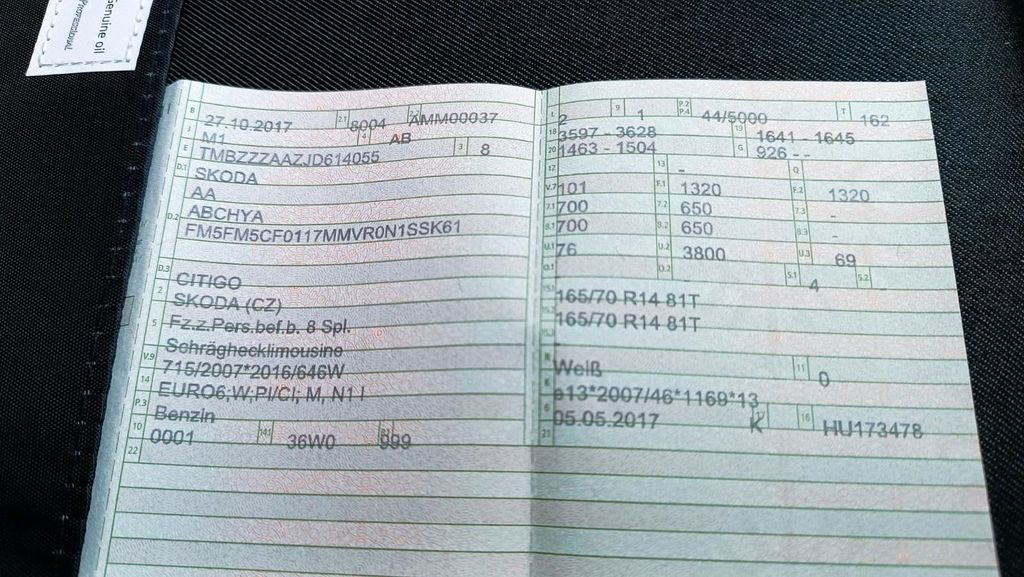 Genuine oil
Professional
B 27.10.2017 2.1 8004 2.2 AMM00037
J M1 4 AB
E TMBZZZAAZJD614055 3 8
D.1 SKODA
AA
D.2 ABCHYA
FM5FM5CF0117MMVR0N1SSK61
D.3 CITIGO
2 SKODA (CZ)
5 Fz.z.Pers.bef.b. 8 Spl.
Schräghecklimousine
V.9 715/2007*2016/646W
14 EURO6;W;PI/CI; M, N1 I
P.3 Benzin
10 0001 14.1 36W0 P.1 999
22
L 2 9 1 P.2 P.4 44/5000 T 162
18 3597 - 3628 19 1641 - 1645
20 1463 - 1504 G 926 - -
12 13 - Q
V.7 101 F.1 1320 F.2 1320
7.1 700 7.2 650 7.3 -
8.1 700 8.2 650 8.3 -
U.1 76 U.2 3800 U.3 69
O.1 O.2 S.1 4 S.2 -
15.1 165/70 R14 81T
15.2 165/70 R14 81T
15.3
R Weiß 11 0
K e13*2007/46*1169*13
6 05.05.2017 17 K 16 HU173478
21